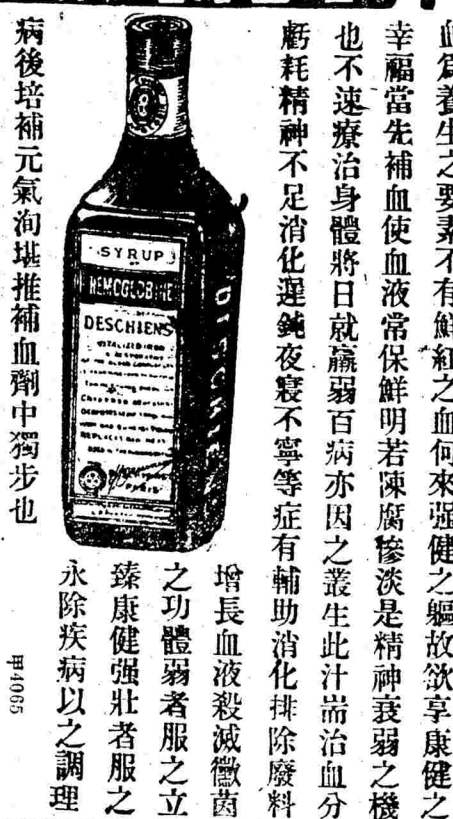 血爲養生之要素不有鮮紅之血何來强健之軀故欲享康健之
幸福當先補血使血液常保鮮明若陳腐慘淡是精神衰弱之機
也不速療治身體將日就羸弱百病亦因之叢生此汁耑治血分
虧耗精神不足消化遲鈍夜寢不寧等症有輔助消化排除廢料
增長血液殺滅黴菌
之功體弱者服之立
臻康健强壯者服之
永除疾病以之調理
病後培補元氣洵堪推補血劑中獨步也
SYRUP
HEMOGLOBINE
DESCHIENS
VITALIZED IRON
PARIS
DESCHIENS
甲4065